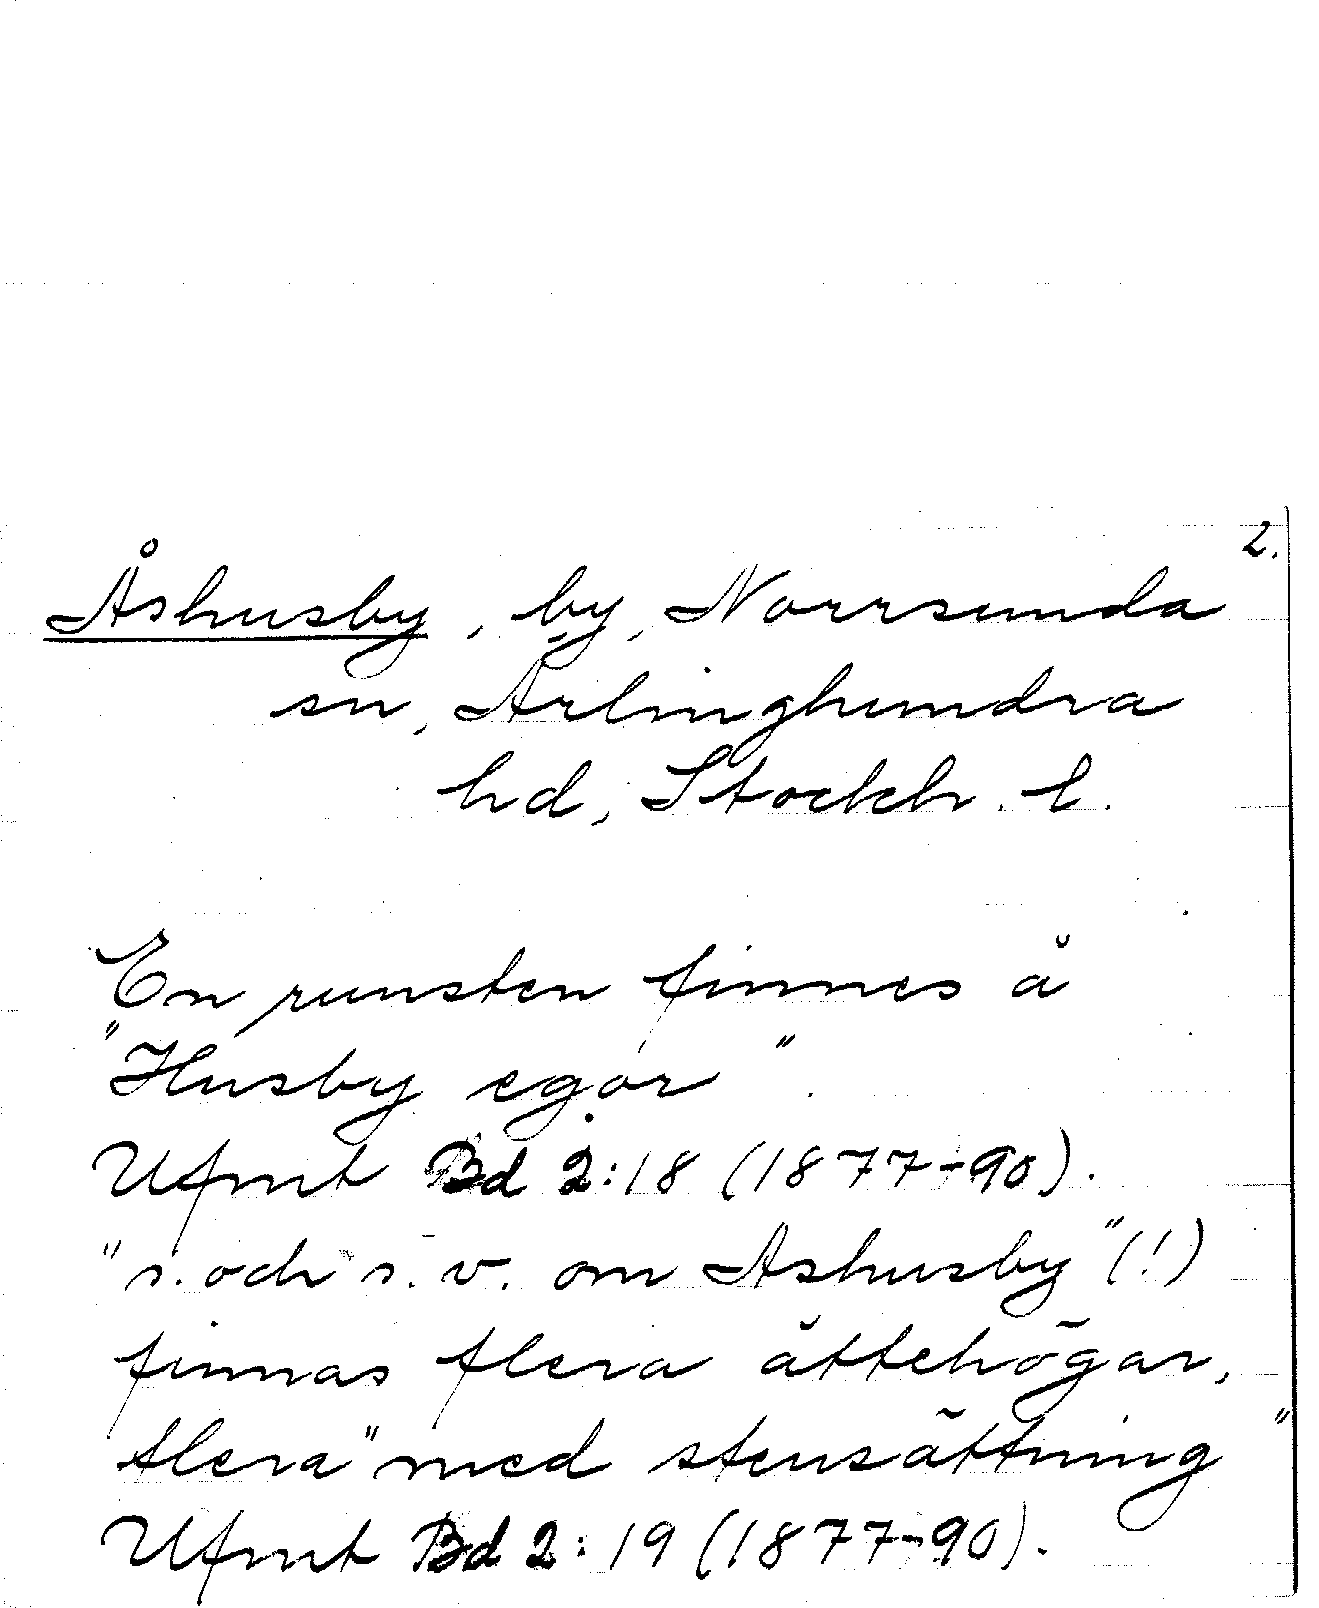 2.
Åshusby, by, Norrsunda
sn, Ärlinghundra
hd, Stockh. l.
En runsten finnes å
"Husby egor".
Ufmt Bd 2:18 (1877-90).
"s. och s. v. om Ashusby" (!)
finnas flera ättehögar,
flera "med stensättning"
Ufmt Bd 2:19 (1877-90).